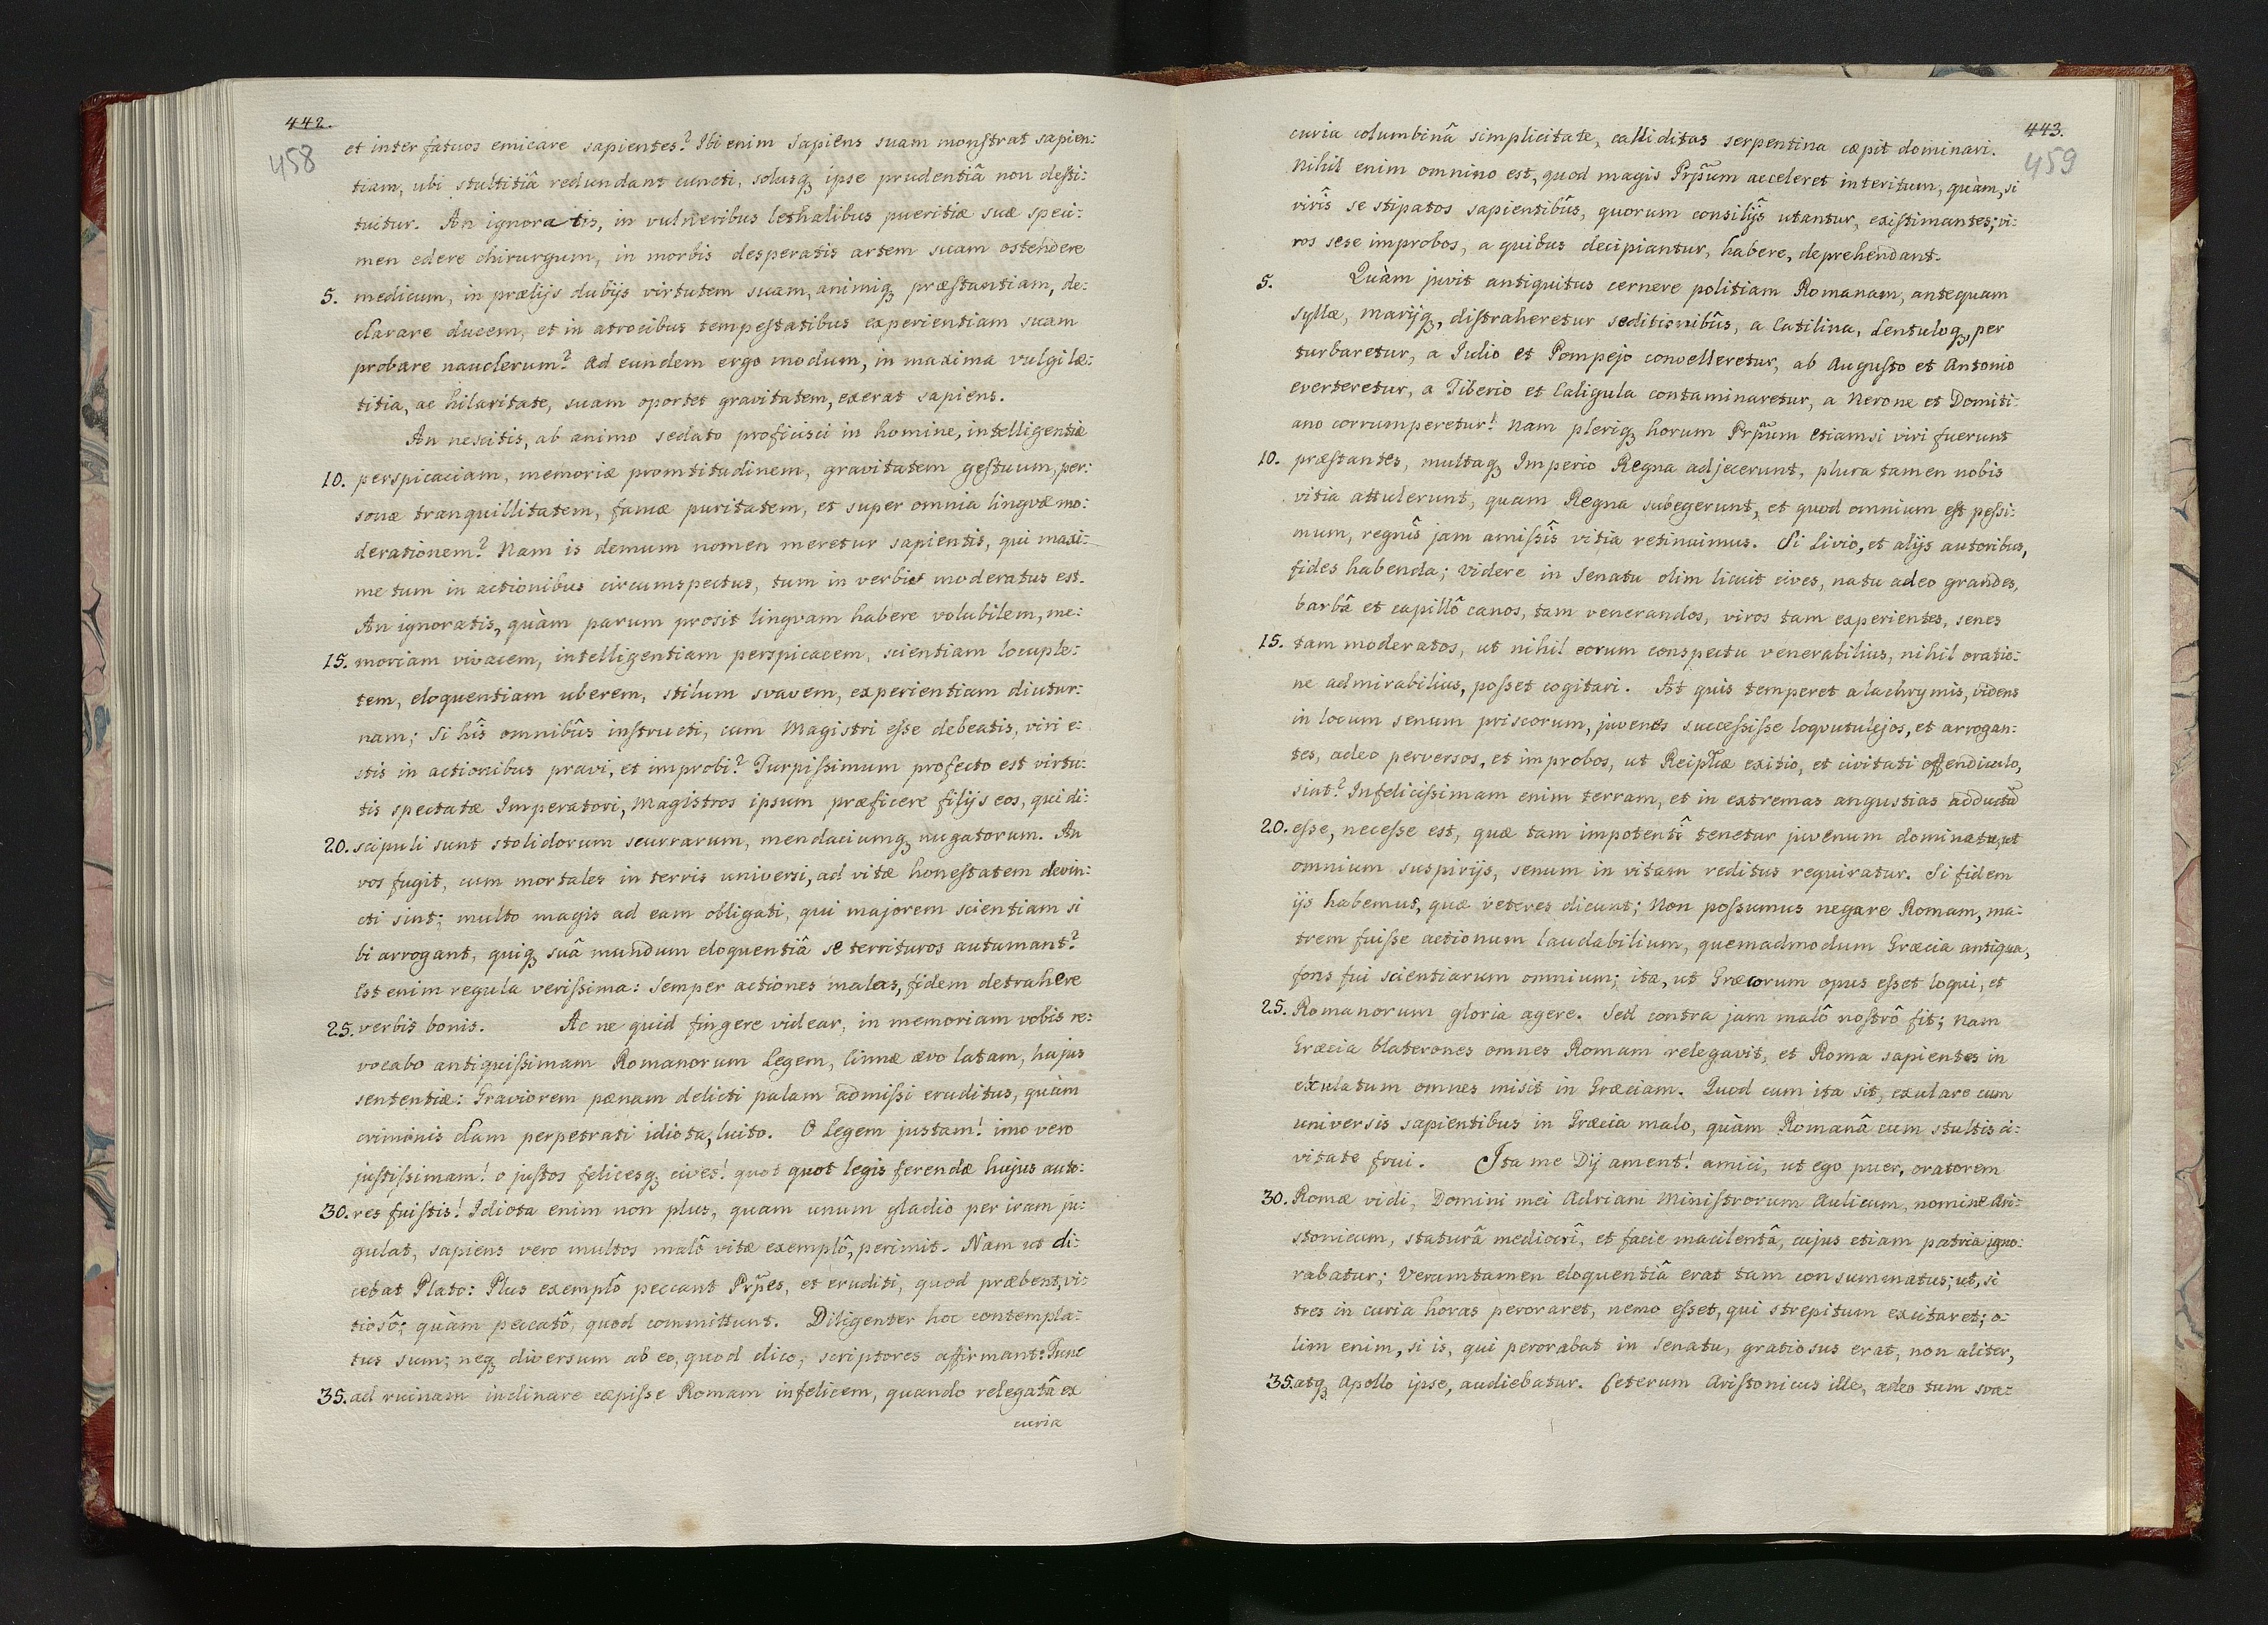 442.
458
et inter fatuos emicare sapientes? Ibi enim Sapiens suam monſtrat sapien:
tiam, ubi stultitiâ redundant cuncti, solusq; ipse prudentiâ non deſti:
tuitur. An ignoratis, in vulneribus lethalibus pueritiæ suæ speci:
men edere chirurgum, in morbis desperatis artem suam ostendere
5. medicum, in prælijs dubijs virtutem suam, animiq; præſtantiam, de:
clarare ducem, et in atrocibus tempeſtatibus experientiam suam
probare nauclerum? Ad eundem ergo modum, in maxima vulgi læ:
titia, ac hilaritate, suam oportet gravitatem, exerat sapiens.
An nescitis, ab animo sedato proficisci in homine, intelligentiæ
10. perspicaciam, memoriæ promtitudinem, gravitatem geſtuum, per:
sonæ tranquillitatem, famæ puritatem, et super omnia lingvæ mo:
derationem? Nam is demum nomen meretur sapientis, qui maxi:
me tum in actionibus circumspectus, tum in verbis moderatus est.
An ignoratis, quàm parum prosit lingvam habere volubilem, me:
15. moriam vivacem, intelligentiam perspicacem, scientiam locuple:
tem, eloquentiam uberem, stilum svavem, experientiam diutur:
nam; Si hîs omnibûs inſtructi, cum Magistri eſse debeatis, viri e:
stis in actionibus pravi, et improbi? Turpiſsimum profecto est virtu:
tis spectatæ Imperatori, Magistros ipsum præficere filijs eos, qui di:
20. scipuli sunt stolidorum scurrarum, mendaciumq; nugatorum. An
vos fugit, cum mortales in terris universi, ad vitæ honeſtatem devin:
cti sint; multo magis ad eam obligati, qui majorem scientiam si
bi arrogant, quiq; suâ mundum eloquentiâ se territuros autumant?
Est enim regula veriſsima: Semper actiones malas, fidem detrahere
25. verbis bonis. Ac ne quid fingere videar, in memoriam vobis re:
vocabo antiquiſsimam Romanorum Legem, Cinnæ ævo latam, hujus
sententiæ: Graviorem pœnam delicti palam admiſsi eruditus, quàm
criminis clam perpetrati idiota, luito. O Legem justam! imo vero
juſtiſsimam! o juſtos felicesq; cives! quot quot legis ferendæ hujus auto:
30. res fuiſtis! Idiota enim non plus, quam unum gladio per iram ju:
gulat, sapiens vero multos malô vitæ exemplô, perimit. Nam ut di:
cebat Plato: Plus exemplô peccant Prp̃es, et eruditi, quod præbent, vi:
tiosô; quàm peccatô, quod committunt. Diligenter hoc contempla:
tus sum; neq; diversum ab eo, quod dico, scriptores affirmant: Tunc
35. ad ruinam inclinare cœpiſse Romam infelicem, quando relegatâ ex
curia
443.
459
curia columbinâ simplicitate, calliditas serpentina cœpit dominari.
Nihil enim omnino est, quod magis Prp̃um acceleret interitum, quàm, si
virîs se stipatos sapientibûs, quorum consilijs utantur, exiſtimantes; vi:
ros sese improbos, a quibus decipiantur, habere, deprehendant.
5. Quàm juvit antiquitus cernere politiam Romanam, antequam
Syllæ, Marijq;, diſtraheretur seditionibûs, a Catilina, Lentuloq;, per
turbaretur, a Julio et Pompejo convelleretur, ab Auguſto et Antonio
everteretur, a Tiberio et Caligula contaminaretur, a Nerone et Domiti:
ano corrumperetur! Nam plerîq; horum Prp̃um etiamsi viri fuerunt
10. præſtantes, multaq; Imperio Regna adjecerunt, plura tamen nobis
vitia attulerunt, quam Regna subegerunt, et quod omnium eſt peſsi:
mum, regnîs jam amiſsîs vitia retinuimus. Si Livio, et alijs autoribus,
fides habenda; videre in Senatu olim licuit cives, natu adeo grandes,
barbâ et capillô canos, tam venerandos, viros tam experientes, senes
15. tam moderatos, ut nihil eorum conspectu venerabilius, nihil oratio:
ne admirabilius, poſset cogitari. At quis temperet a lachrymis, videns
in locum senum priscorum, juvenes succeſsiſse loqvutulejos, et arrogan:
tes, adeo perversos, et improbos, ut Reip̃læ exitio, et civitati offendiculo,
sint? Infeliciſsimam enim terram, et in extremas angustias adductã
20. eſse, neceſse est, quæ tam impotentî tenetur juvenum dominatu, ut
omnium suspirijs, senum in vitam reditus requiratur. Si fidem
ijs habemus, quæ veteres dicunt; Non poſsumus negare Romam, ma:
trem fuiſse actionum laudabilium, quemadmodum Græcia antiqua,
fons fui scientiarum omnium; ita, ut Græcorum opus eſset loqui, et
25. Romanorum gloria agere. Sed contra jam malô noſtrô fit; Nam
Græcia blaterones omnes Romam relegavit, et Roma sapientes in
exulatum omnes misit in Græciam. Quod cum ita sit, exulare cum
universis sapientibus in Græcia malo, quàm Romanâ cum stultis ci:
vitate frui. Ita me Dij ament! amici, ut ego puer, oratorem
30. Romæ vidi, Domini mei Adriani Miniſtrorum Aulicum, nomine Ari:
stonicum, staturâ mediocrî, et facie macilentâ, cujus etiam patria igno:
rabatur; Verumtamen eloquentiâ erat tam consummatus; ut, si
tres in curia horas peroraret, nemo eſset, qui strepitum excitaret; o:
lim enim, si is, qui perorabat in Senatu, gratiosus erat, non aliter,
35. atq; Apollo ipse, audiebatur. Ceterum Ariſtonicus ille, adeo tum sva: